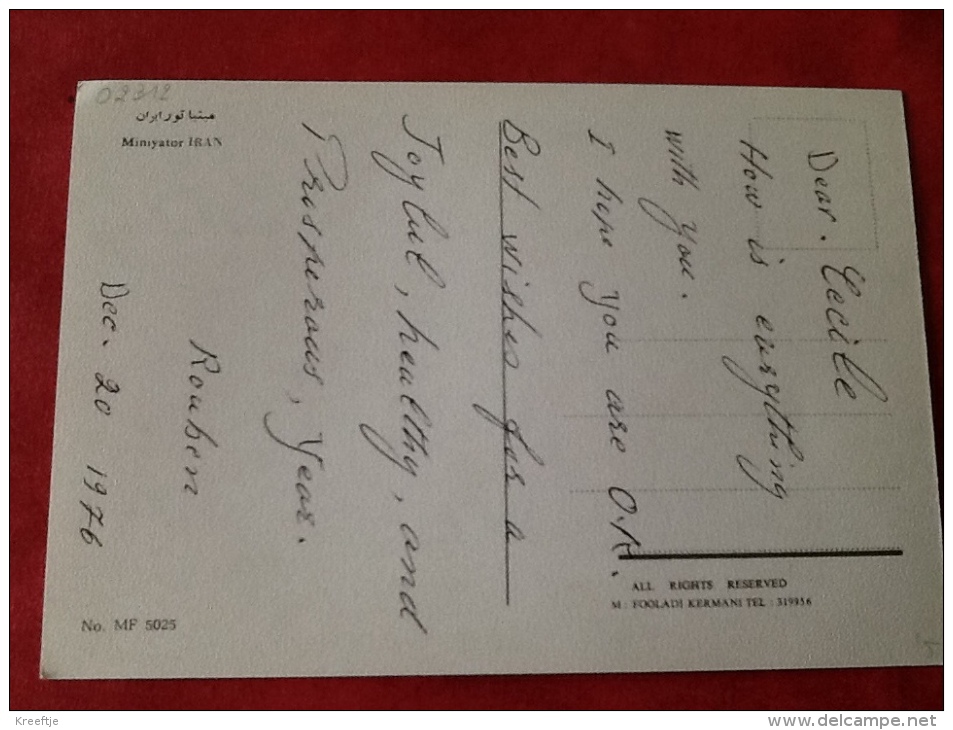 02312
مینیاتور ایران
Miniyator IRAN
Dear. Cecile
How is everything
with you.
I hope you are O.K.
Best wishes for a
Joyful, healthy, and
Prosperous, Year.
Rouben
Dec. 20 1976
ALL RIGHTS RESERVED
M : FOOLADI KERMANI TEL : 319956
No. MF 5025
Kreeftje
www.delcampe.net